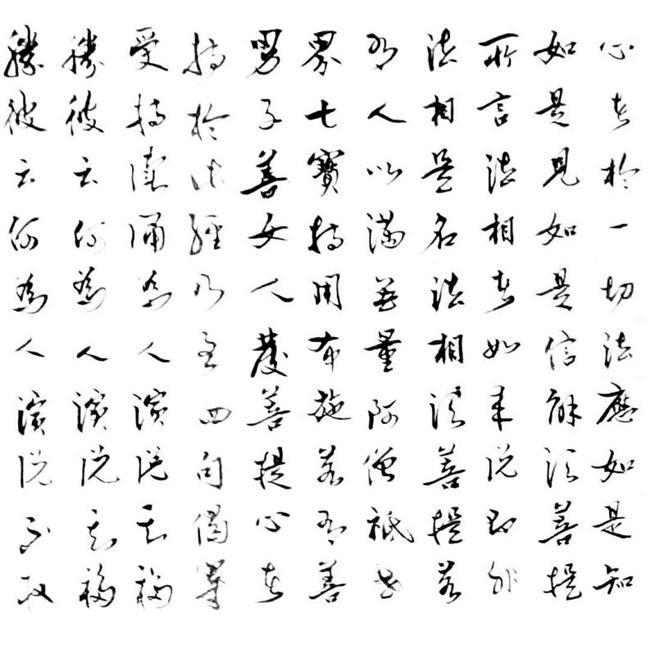 心者於一切法應如是知
如是見如是信解須菩提
所言法相者如來說即非
法相是名法相須菩提若
有人以滿無量阿僧祇世
界七寶持用布施若有善
男子善女人發菩提心者
持於此經乃至四句偈等
受持讀誦為人演說其福
勝彼云何為人演說其福
勝彼云何為人演說不取